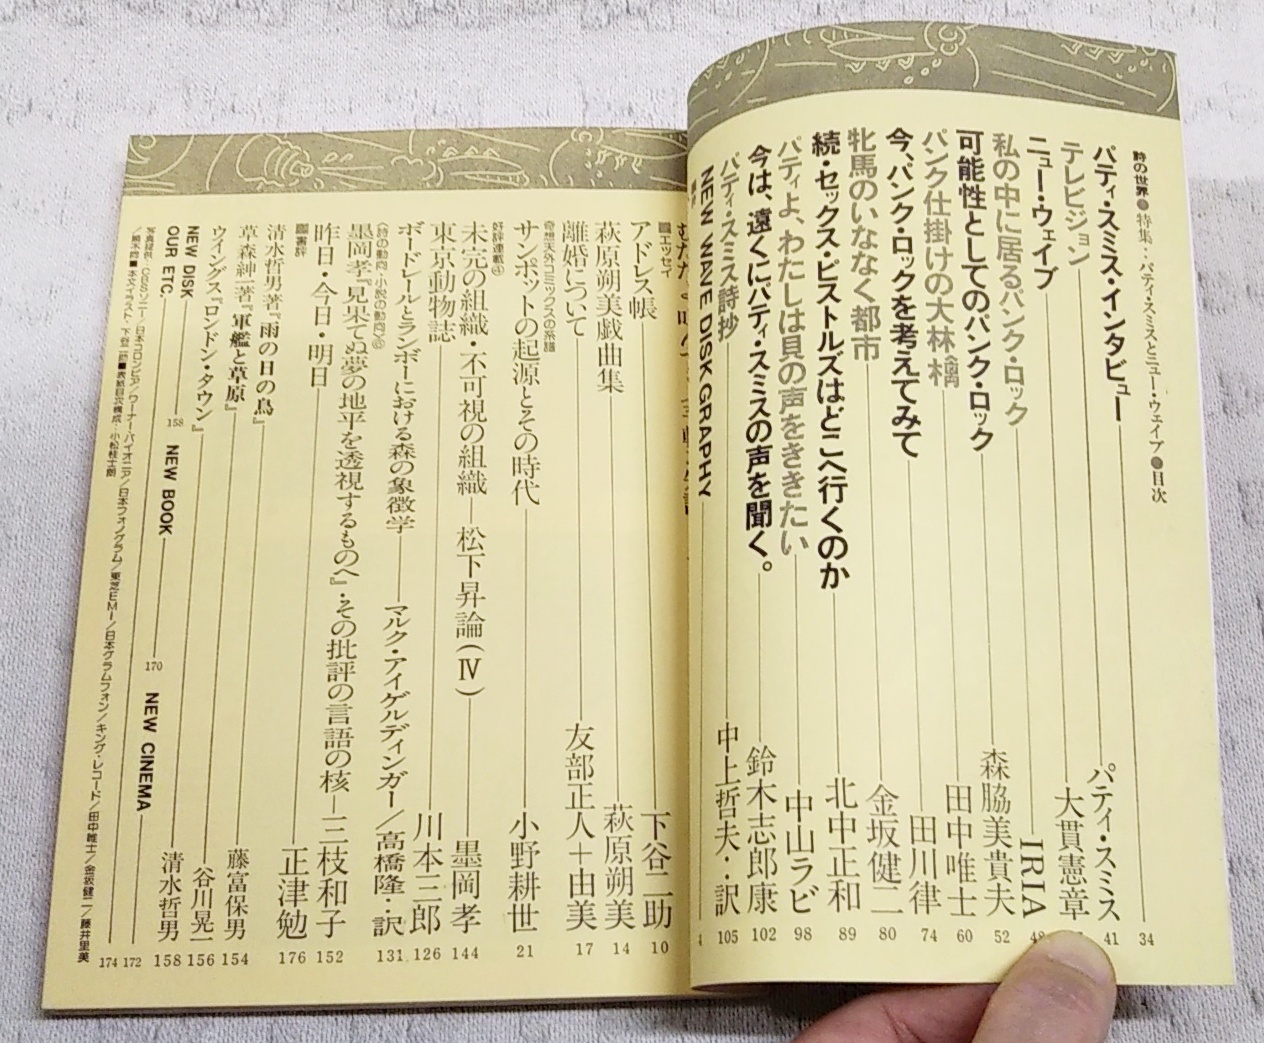 詩の世界●特集：パティ・スミスとニュー・ウェイブ●目次 34
パティ・スミス・インタビュー パティ・スミス 41
テレビジョン 大貫憲章
ニュー・ウェイブ IRIA 48
私の中に居るパンク・ロック 森脇美貴夫 52
可能性としてのパンク・ロック 田中唯士 60
パンク仕掛けの大林檎 田川律 74
今、パンク・ロックを考えてみて 金坂健二 80
牝馬のいななく都市
続・セックス・ピストルズはどこへ行くのか 北中正和 89
パティよ、わたしは貝の声をききたい 中山ラビ 98
今は、遠くにパティ・スミスの声を聞く。 鈴木志郎康 102
パティ・スミス詩抄 中上哲夫・訳 105
NEW WAVE DISK GRAPHY
■エッセイ
アドレス帳 下谷二助 10
萩原朔美戯曲集 萩原朔美 14
離婚について 友部正人＋由美 17
奇想天外コミックスの系譜
サンポットの起源とその時代 小野耕世 21
好評連載④
未完の組織・不可視の組織—松下昇論(Ⅳ) 墨岡孝 144
東京動物誌 川本三郎 126
ボードレールとランボーにおける森の象徴学 マルク・アイゲルディンガー／高橋隆・訳 131
〈詩の動向・小説の動向〉⑥
墨岡孝『見果てぬ夢の地平を透視するものへ』・その批評の言語の核 三枝和子 152
昨日・今日・明日 正津勉 176
■書評
清水哲男著『雨の日の鳥』 藤富保男 154
草森紳一著『軍艦と草原』 谷川晃一 156
ウイングス『ロンドン・タウン』 清水哲男 158
NEW DISK 158 NEW BOOK 170 NEW CINEMA 172
OUR ETC. 174